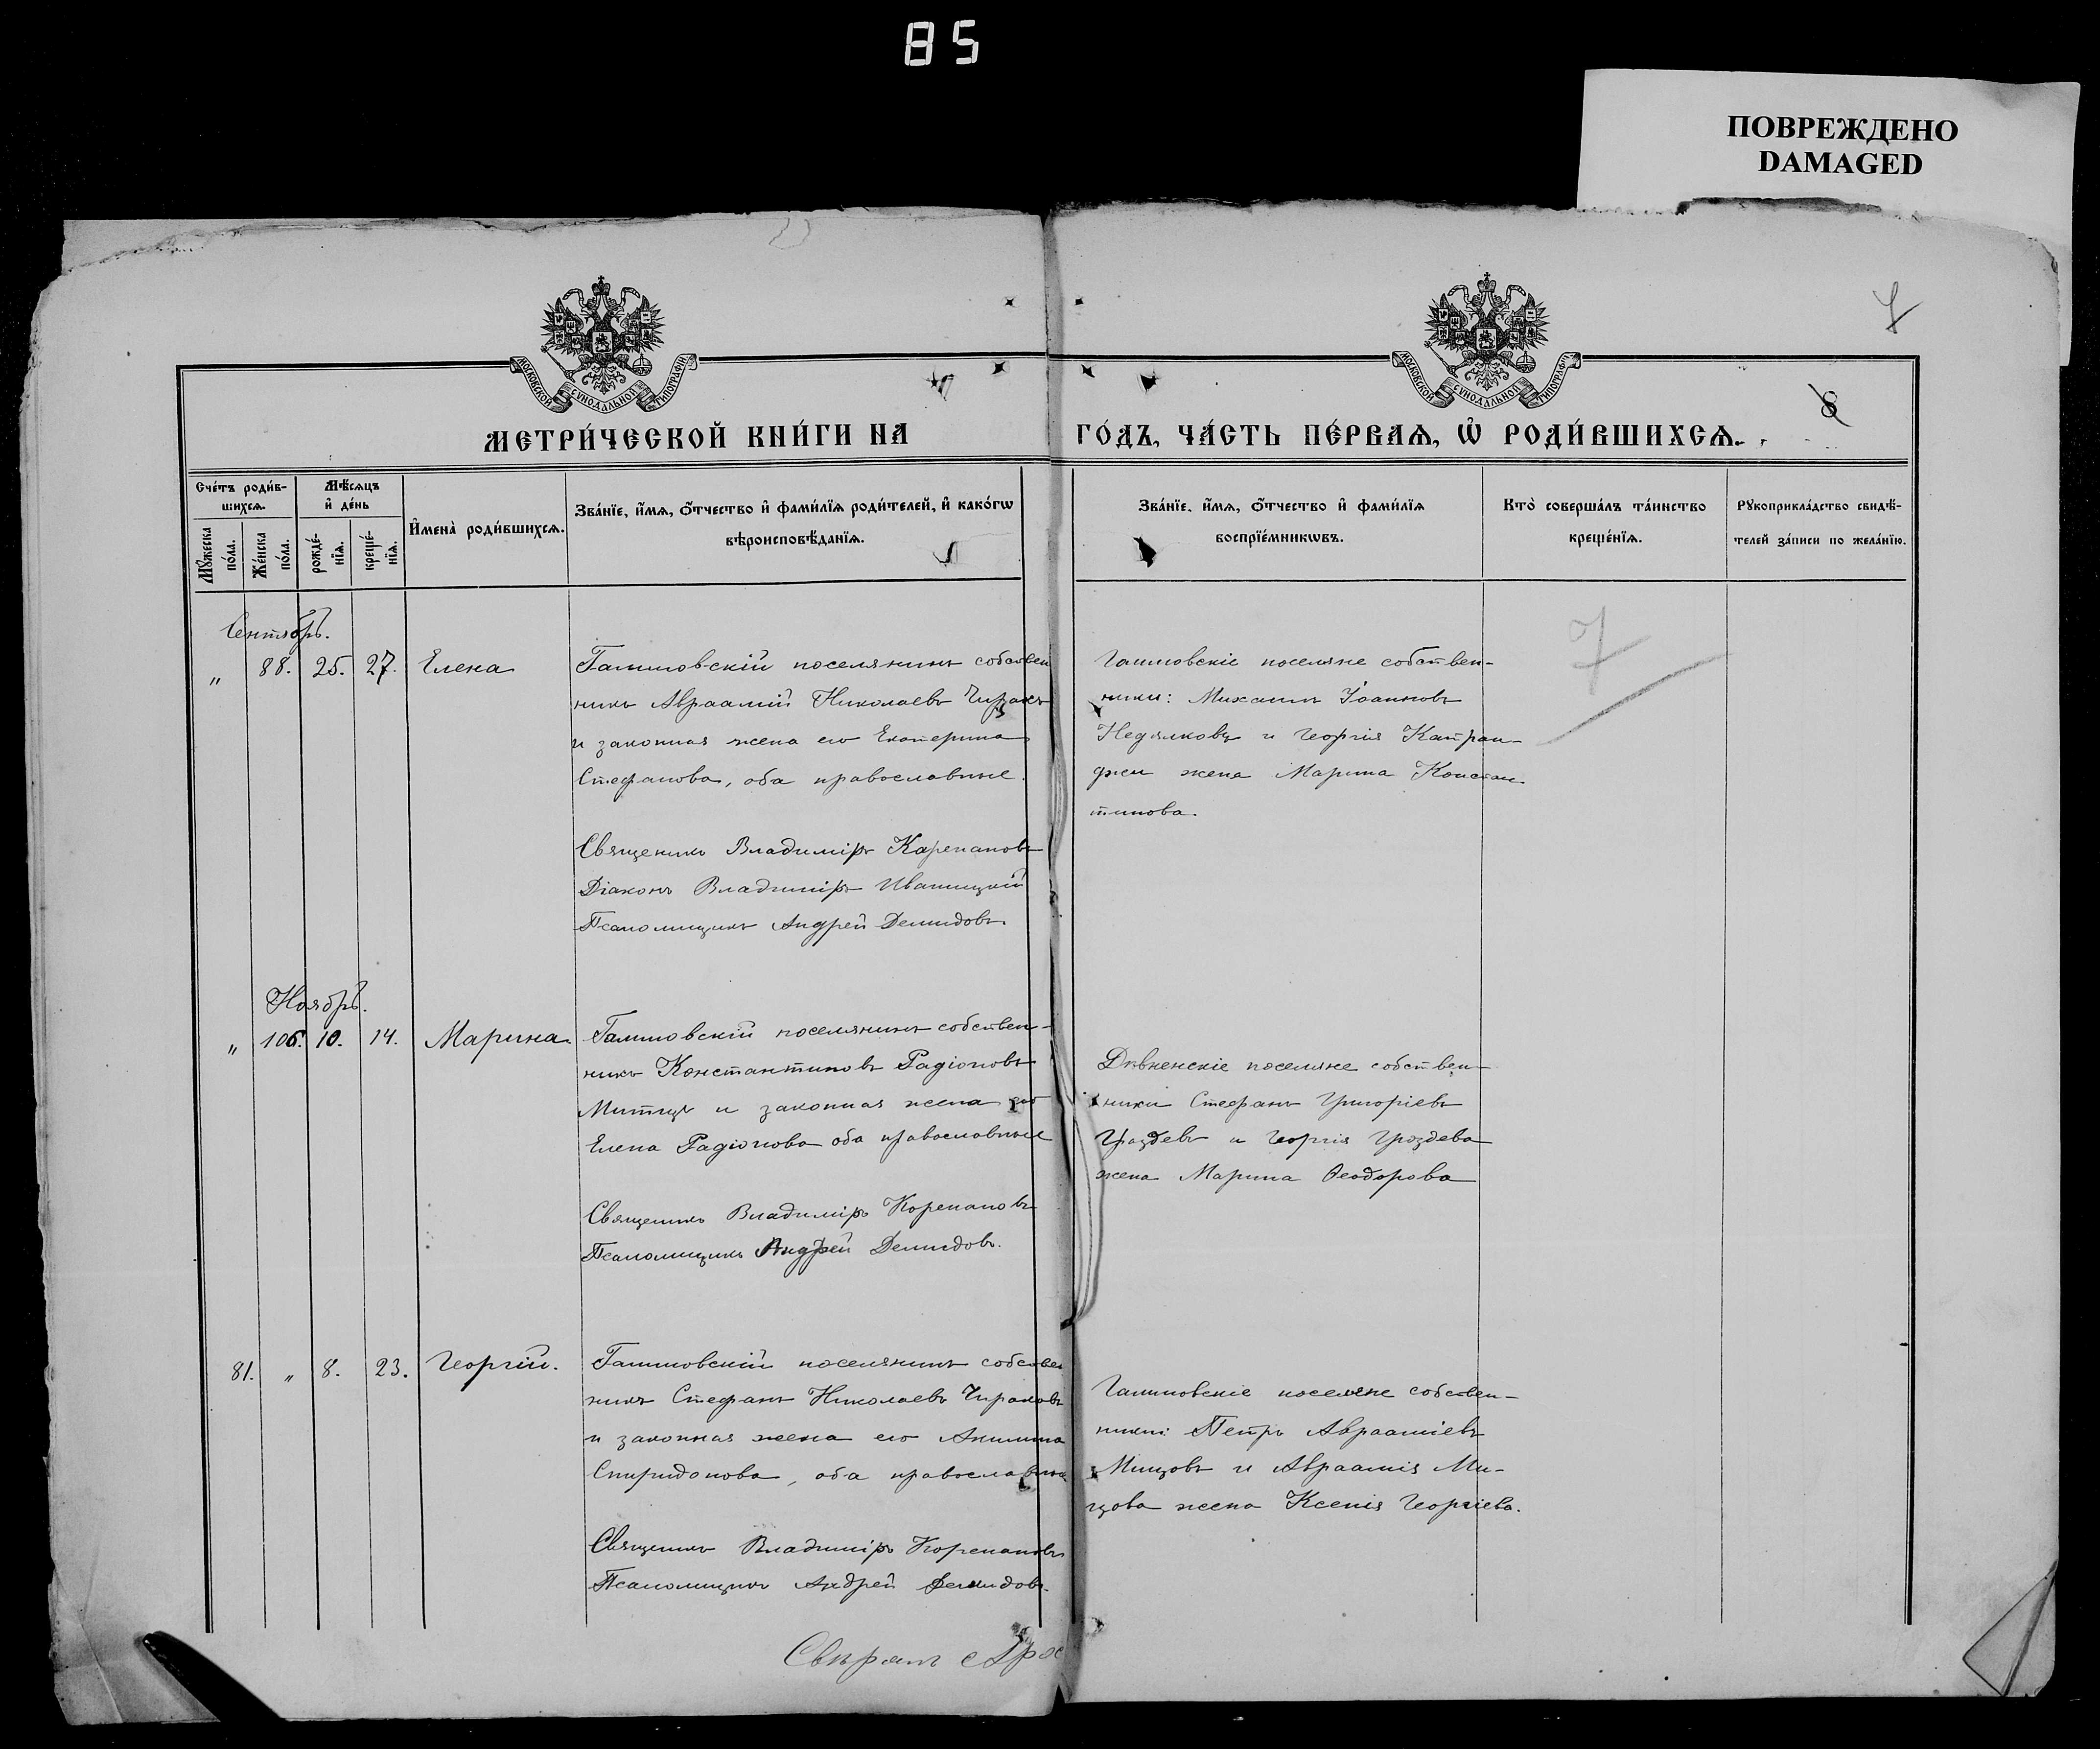 85
ПОВРЕЖДЕНО
DAMAGED
7
8
МОСКОВСКОЙ СѴНОДАЛЬНОЙ ТИПОГРАФІИ
МОСКОВСКОЙ СѴНОДАЛЬНОЙ ТИПОГРАФІИ
МЕТРИ́ЧЕСКОЙ КНИ́ГИ НА ГО́ДЪ, ЧА́СТЬ ПЕ́РВАѦ, Ѡ҆ РОДИ́ВШИХСѦ.
Сче́тъ роди́в-
шихсѧ.
Мꙋ́жеска
по́ла.
Же́нска
по́ла.
Мѣ́сѧцъ
и҆ де́нь
рожде́-
нїѧ.
креще́-
нїѧ.
И҆мена̀ роди́вшихсѧ.
Зва́нїе, и҆́мѧ, ѻ҆́тчество и҆ фами́лїѧ роди́телей, и҆ како́гѡ
вѣроисповѣ́данїѧ.
Зва́нїе, и҆́мѧ, ѻ҆́тчество и҆ фами́лїѧ
воспрїе́мникѡвъ.
Кто̀ соверша́лъ та́инство
креще́нїѧ.
Рꙋкоприкла́дство свидѣ́-
телей за́писи по жела́нїю.
Сентябрь.
„ 88. 25. 27. Елена
Галиловскій поселянинъ собствен
никъ Авраамій Николаевъ
и законная жена его Екатерина
Стефанова, оба православные.
Священикъ Владиміръ Карепановъ
Діаконъ Владиміръ Иваницкій
Псаломщикъ Андрей Демидовъ.
поселяне собствен-
ники: Михаилъ Іоанновъ
Недялковъ и Георгія Катран-
джи жена Марина Констан-
тинова.
7
Ноябрь.
„ 106. 10. 14. Марина.
поселянинъ собствен-
никъ Константиновъ Радіоновъ
и законная жена его
Елена Радіонова оба православные
Священикъ Владиміръ Корепановъ
Псаломщикъ Андрей Демидовъ.
поселяне собствен-
ники Стефанъ Григоріевъ
Гроздевъ и Георгія Гроздева
жена Марина Ѳеодорова
81. „ 8. 23. Георгій.
поселянинъ собствен
никъ Стефанъ Николаевъ Чираковъ
и законная жена его Акилина
Спиридонова, оба православные
Священикъ Владиміръ Корепановъ
Псаломщикъ Андрей Демидовъ.
поселяне собствен-
ники: Петръ Авраамiевъ
Мицовъ и Авраамія Ми-
цова жена Ксенія Георгіева.